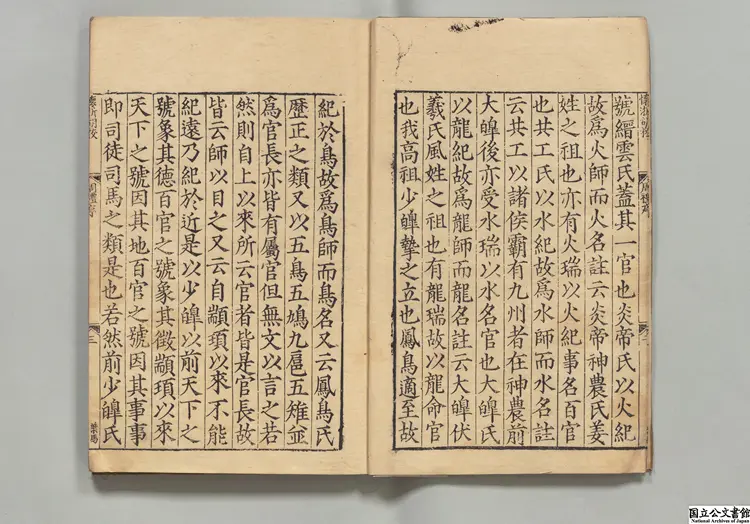 號縉雲氏蓋其一官也炎帝氏以火紀
故爲火師而火名註云炎帝神農氏姜
姓之祖也亦有火瑞以火紀事名百官
也共工氏以水紀故爲水師而水名註
云共工以諸侯霸有九州者在神農前
大皥後亦受水瑞以水名官也大皥氏
以龍紀故爲龍師而龍名註云大皥伏
羲氏風姓之祖也有龍瑞故以龍命官
也我高祖少皥摯之立也鳳鳥適至故
紀於鳥故爲鳥師而鳥名又云鳳鳥氏
歷正之類又以五鳥五鳩九扈五雉並
爲官長亦皆有屬官但無文以言之若
然則自上以來所云官者皆是官長故
皆云師以目之又云自顓頊以來不能
紀遠乃紀於近是以少皥以前天下之
號象其德百官之號象其徵顓頊以來
天下之號因其地百官之號因其事事
即司徒司馬之類是也若然前少皥氏
周禮序
三
国立公文書館
National Archives of Japan